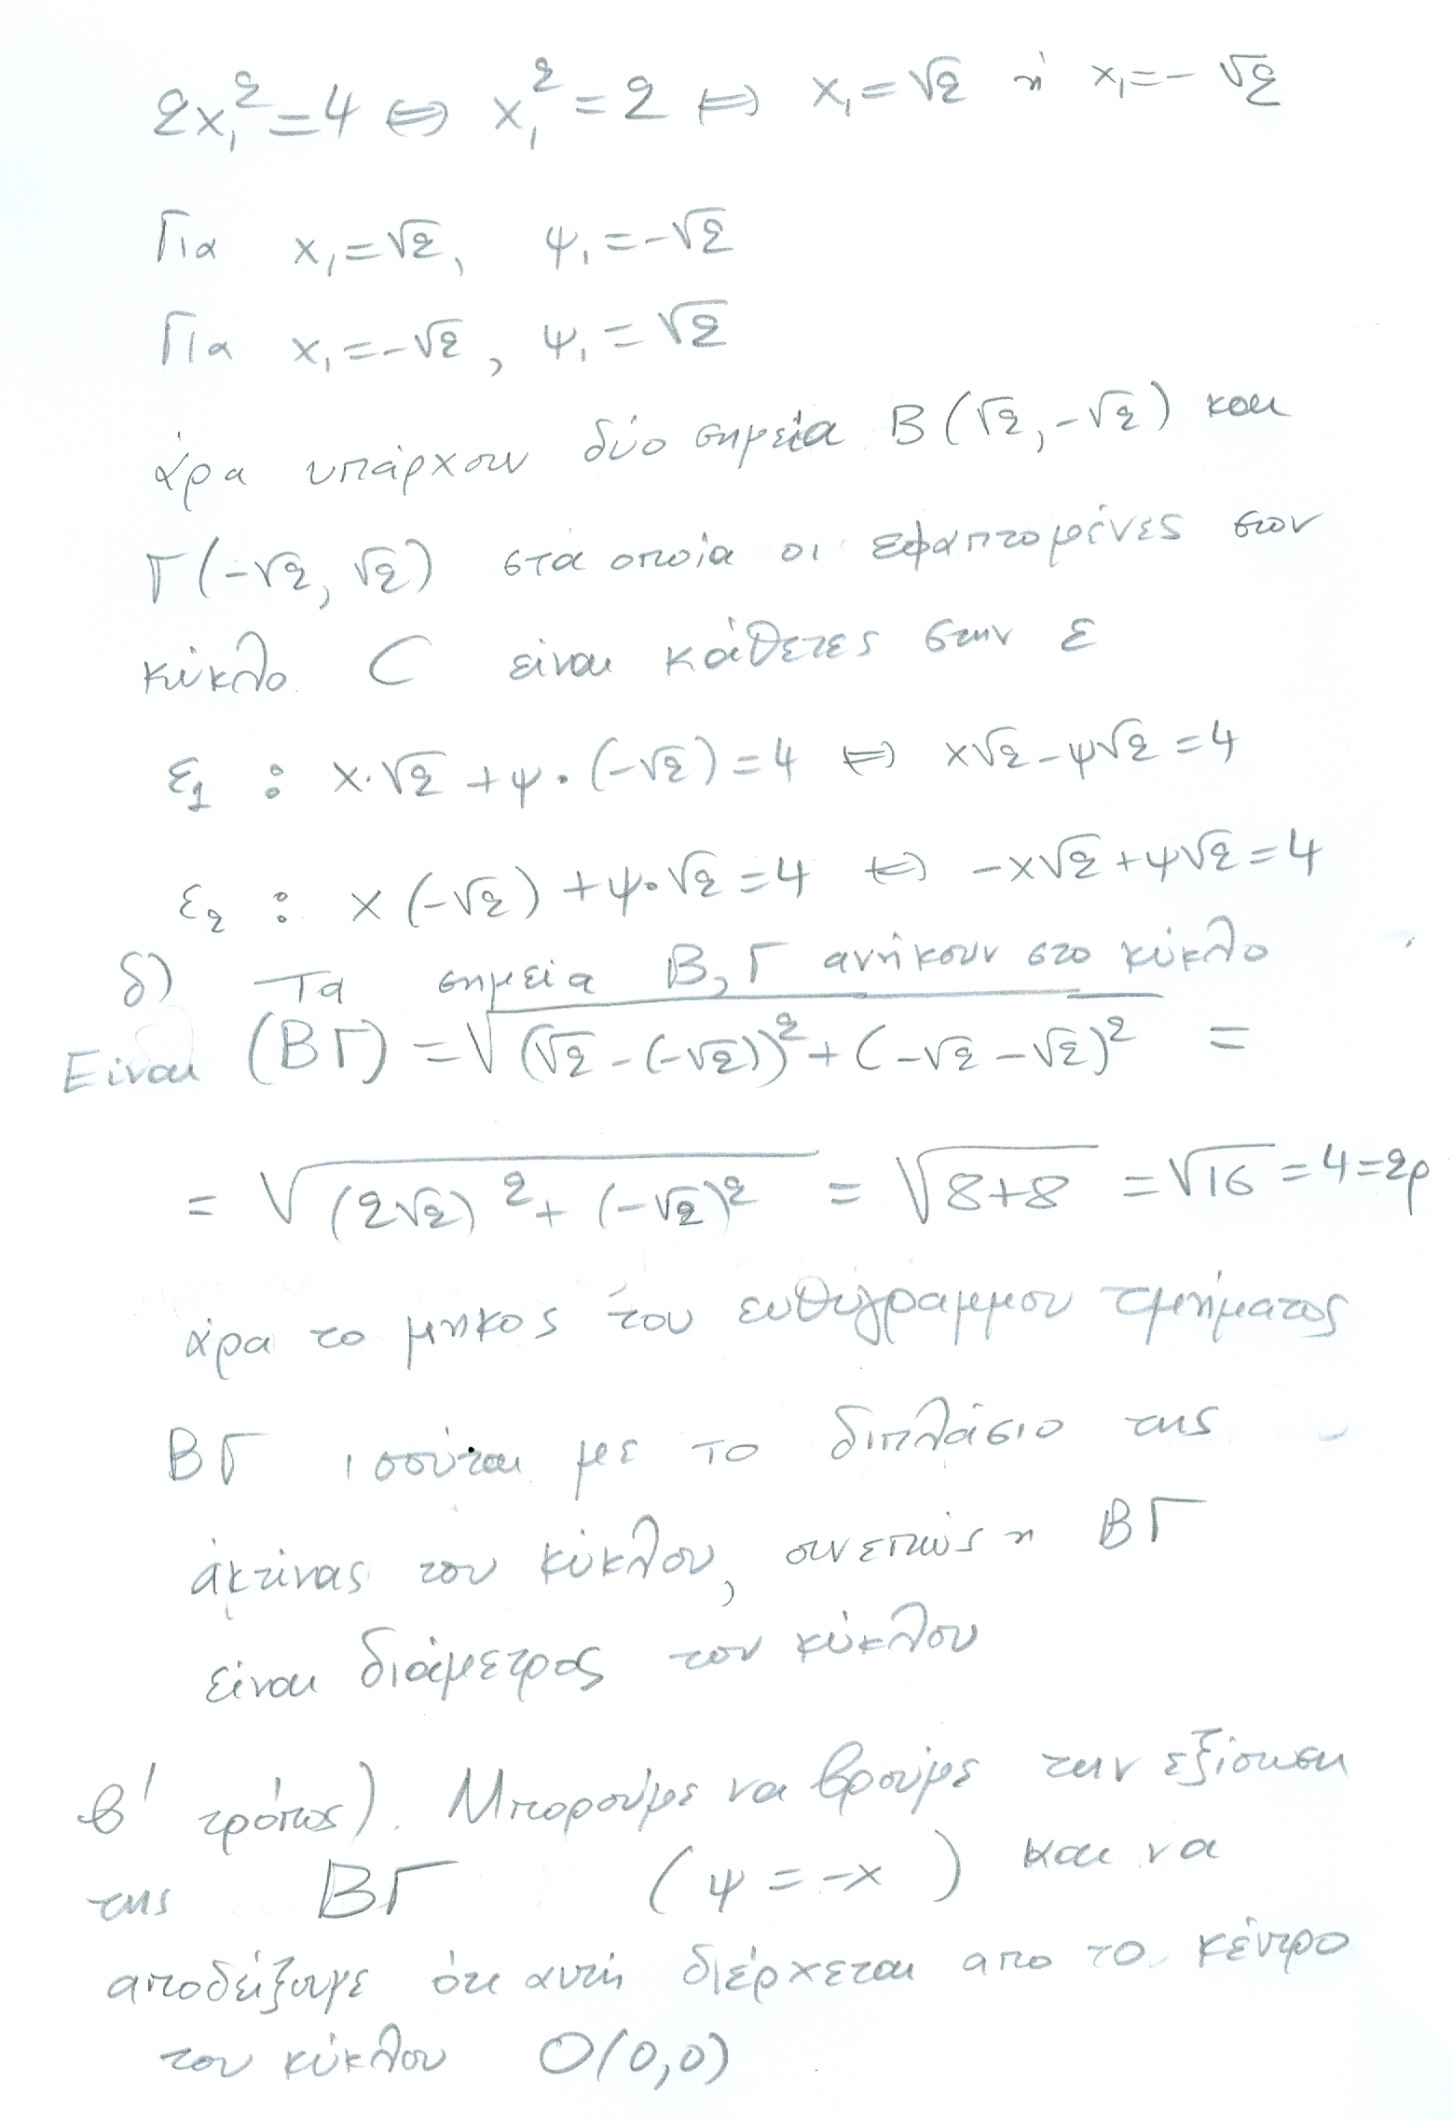 2x₁² = 4 ⇔ x₁² = 2 ⇔ x₁ = √2 ή x₁ = -√2
Για x₁ = √2, ψ₁ = -√2
Για x₁ = -√2, ψ₁ = √2
άρα υπάρχουν δύο σημεία Β(√2, -√2) και
Γ(-√2, √2) στα οποία οι εφαπτομένες στον
κύκλο C είναι κάθετες στην ε
ε₁ : x·√2 + ψ·(-√2) = 4 ⇔ x√2 - ψ√2 = 4
ε₂ : x(-√2) + ψ·√2 = 4 ⇔ -x√2 + ψ√2 = 4
δ) Τα σημεία Β, Γ ανήκουν στο κύκλο
Είναι (ΒΓ) = √((√2 - (-√2))² + (-√2 - √2)²) =
= √((2√2)² + (-√2)²) = √(8+8) = √16 = 4 = 2ρ
άρα το μηκος του ευθύγραμμου τμήματος
ΒΓ ισούται με το διπλάσιο της
ακτίνας του κύκλου, συνεπώς η ΒΓ
είναι διάμετρος του κύκλου
β' τρόπος). Μπορούμε να βρούμε την εξίσωση
της ΒΓ (ψ = -x) και να
αποδείξουμε ότι αυτή διέρχεται απο το κέντρο
του κύκλου Ο(0,0)